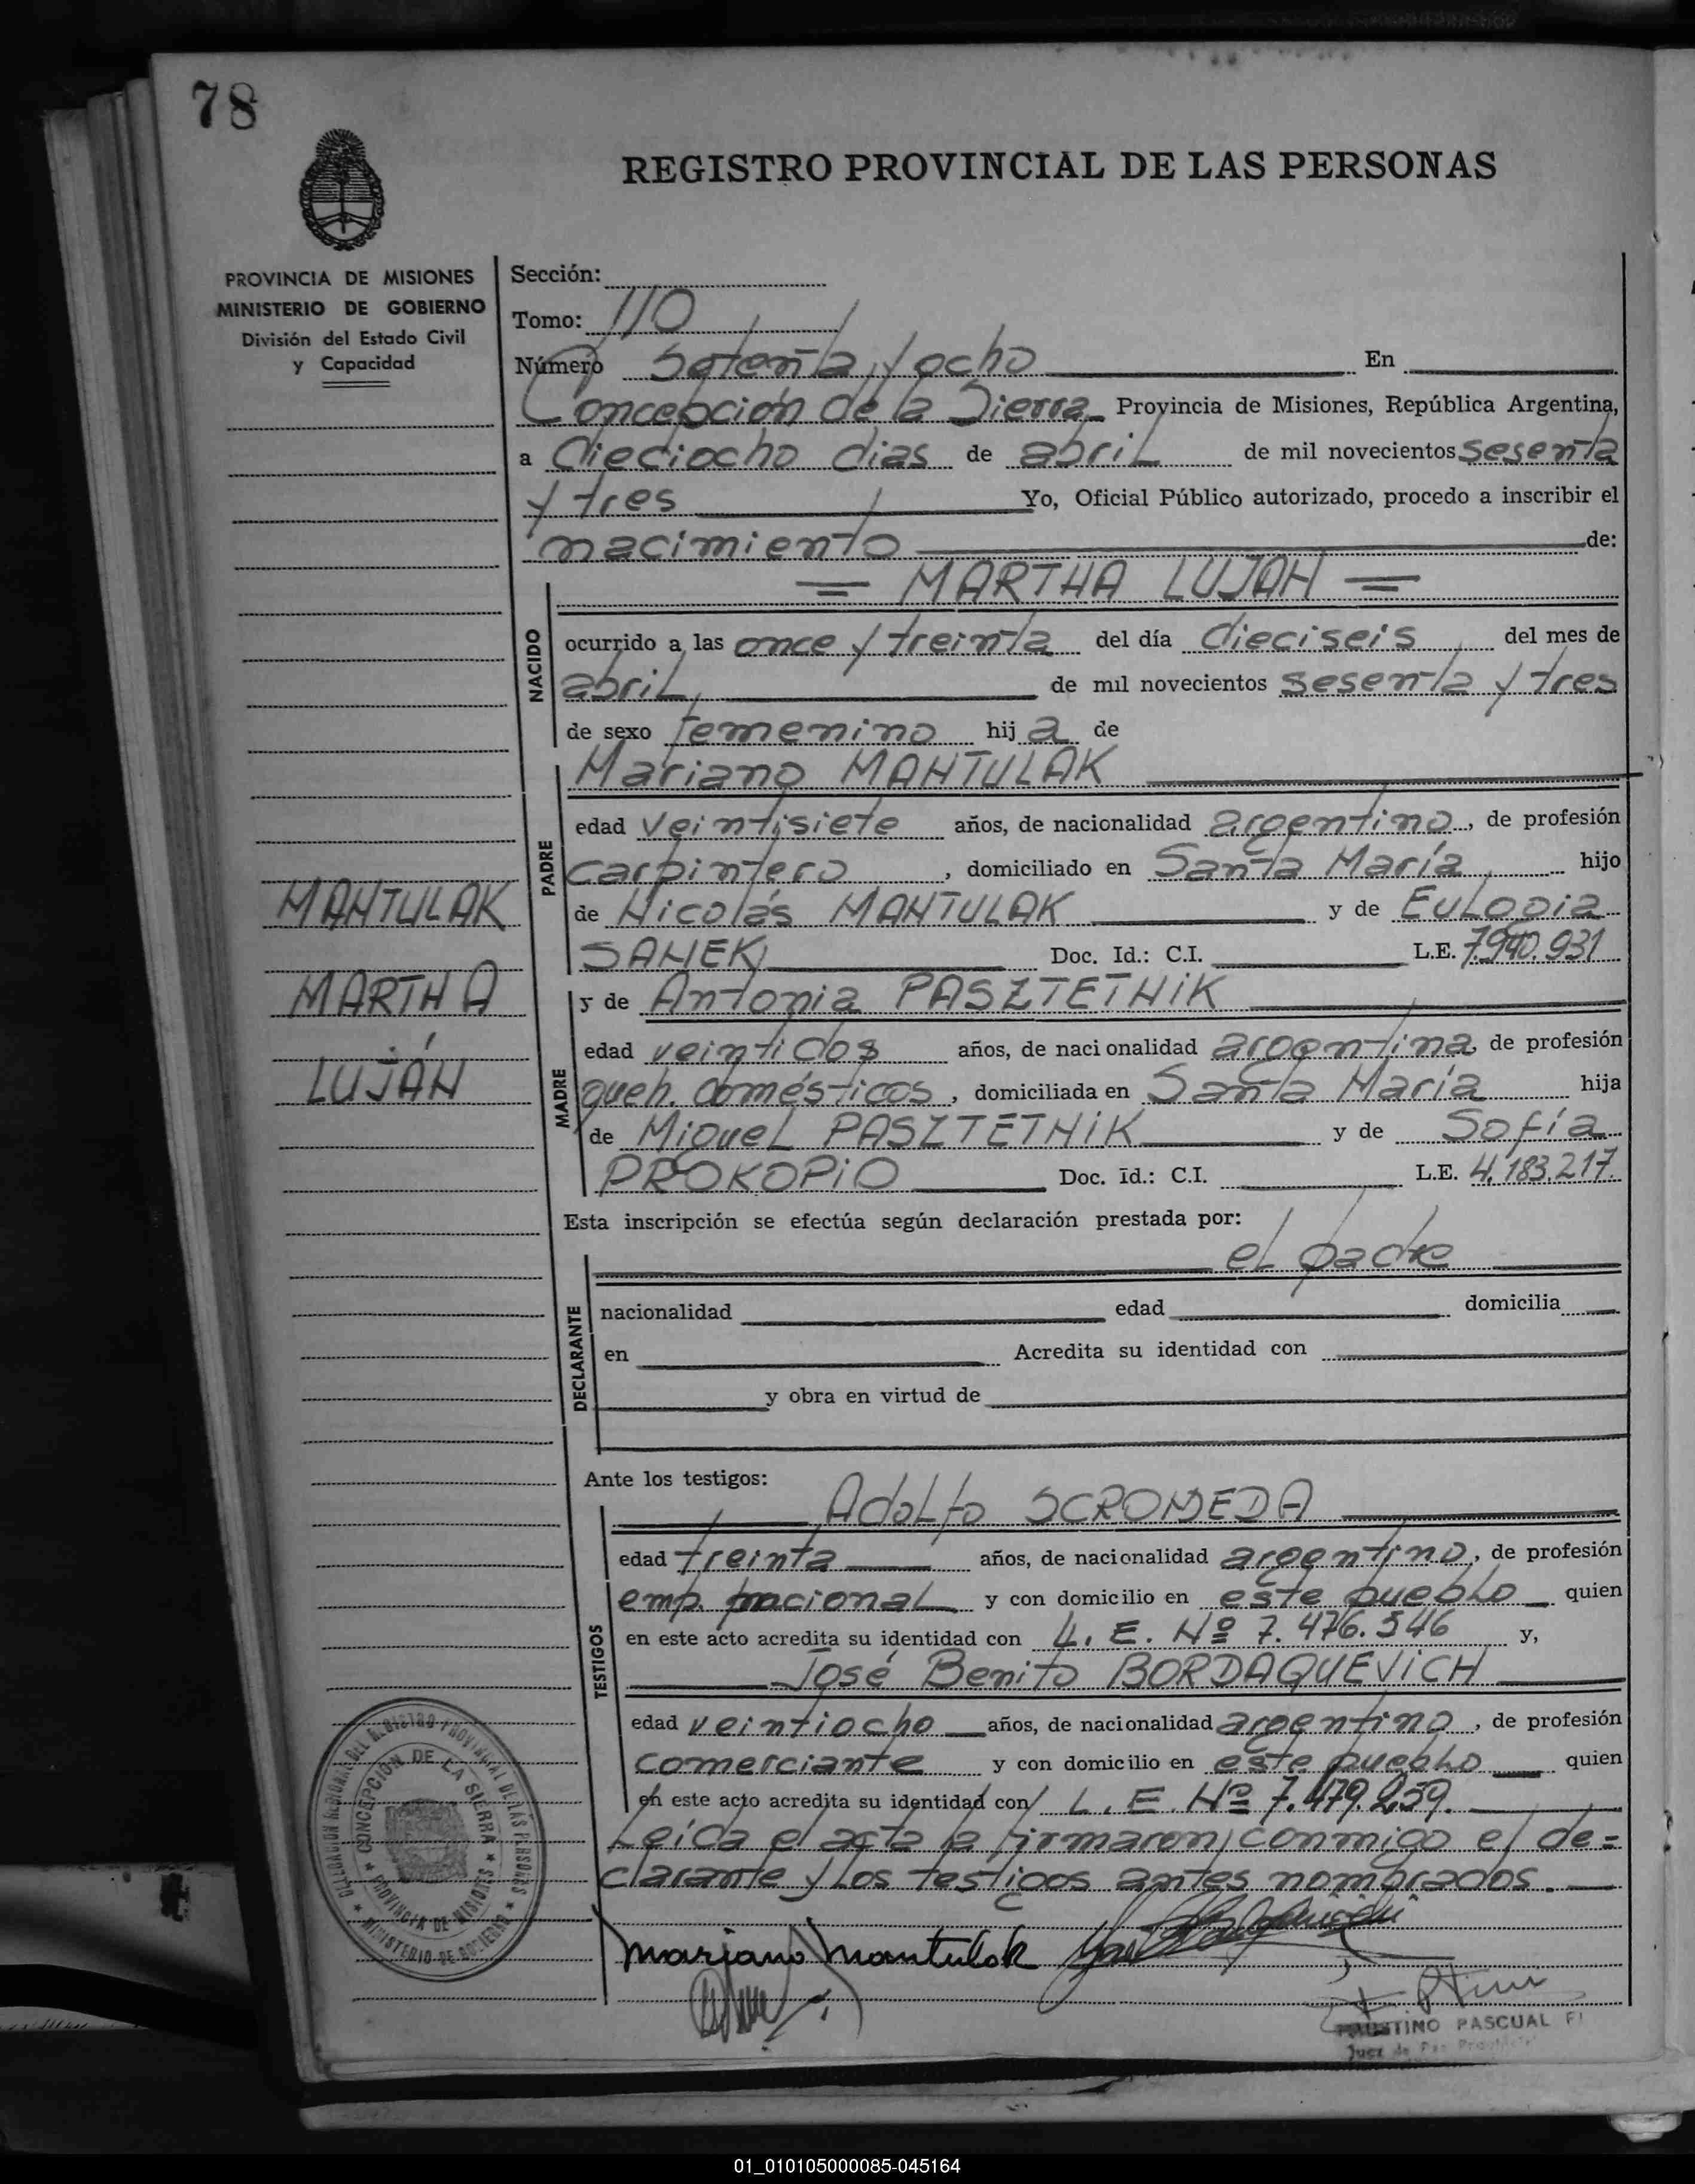 78
REGISTRO PROVINCIAL DE LAS PERSONAS
PROVINCIA DE MISIONES
MINISTERIO DE GOBIERNO
División del Estado Civil
y Capacidad
Sección:
Tomo: 110
Número Setenta y ocho En
Concepción de la Sierra Provincia de Misiones, República Argentina,
a dieciocho días de abril de mil novecientos sesenta
y tres Yo, Oficial Público autorizado, procedo a inscribir el
nacimiento de:
= MARTHA LUJAN =
NACIDO
ocurrido a las once y treinta del día dieciseis del mes de
abril de mil novecientos sesenta y tres
de sexo femenino hija de
Mariano MANTULAK
PADRE
edad veintisiete años, de nacionalidad argentino, de profesión
carpintero, domiciliado en Santa María hijo
de Nicolás MANTULAK y de Eulogia
SANEK Doc. Id.: C.I. L.E. 7.940.931
MANTULAK
MARTHA
LUJÁN
y de Antonia PASZTETNIK
MADRE
edad veintidos años, de nacionalidad argentina, de profesión
queh. domésticos, domiciliada en Santa María hija
de Miguel PASZTETNIK y de Sofía
PROKOPIO Doc. Id.: C.I. L.E. 4.183.217.
Esta inscripción se efectúa según declaración prestada por:
el padre
DECLARANTE
nacionalidad edad domicilia
en Acredita su identidad con
y obra en virtud de
Ante los testigos:
Adolfo SCROMEDA
TESTIGOS
edad treinta años, de nacionalidad argentino, de profesión
emp. nacional y con domicilio en este pueblo quien
en este acto acredita su identidad con L. E. Nº 7.476.546 y,
José Benito BORDAQUEVICH
edad veintiocho años, de nacionalidad argentino, de profesión
comerciante y con domicilio en este pueblo quien
en este acto acredita su identidad con L. E. Nº 7.479.259.
Leída el acta la firmaron conmigo el de=
clarante y los testigos antes nombrados.
Mariano Mantulak
DELEGACION REGIONAL DEL REGISTRO PROVINCIAL DE LAS PERSONAS
CONCEPCION DE LA SIERRA
PROVINCIA DE MISIONES
MINISTERIO DE GOBIERNO
FAUSTINO PASCUAL
Juez de Paz
01_010105000085-045164